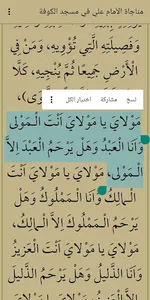 مناجاة الامام علي في مسجد الكوفة
وَفَصِيلَتِهِ الَّتِي تُؤْوِيهِ، وَمَنْ فِي
الْأَرْضِ جَمِيعًا ثُمَّ يُنْجِيهِ، كَلَّا
نسخ مشاركة اختيار الكل
مَوْلَايَ يا مَوْلَايَ اَنْتَ الْمَوْلى
وَاَنَا الْعَبْدُ وَهَلْ يَرْحَمُ الْعَبْدَ اِلاَّ
الْمَوْلى، مَوْلَايَ يا مَوْلَايَ اَنْتَ
الْمَالِكُ وَاَنَا الْمَمْلُوكُ وَهَلْ
يَرْحَمُ الْمَمْلُوكَ اِلاَّ الْمالِكُ،
مَوْلَايَ يا مَوْلَايَ اَنْتَ الْعَزيزُ
وَاَنَا الذَّليلُ وَهَلْ يَرْحَمُ الذَّليلَ